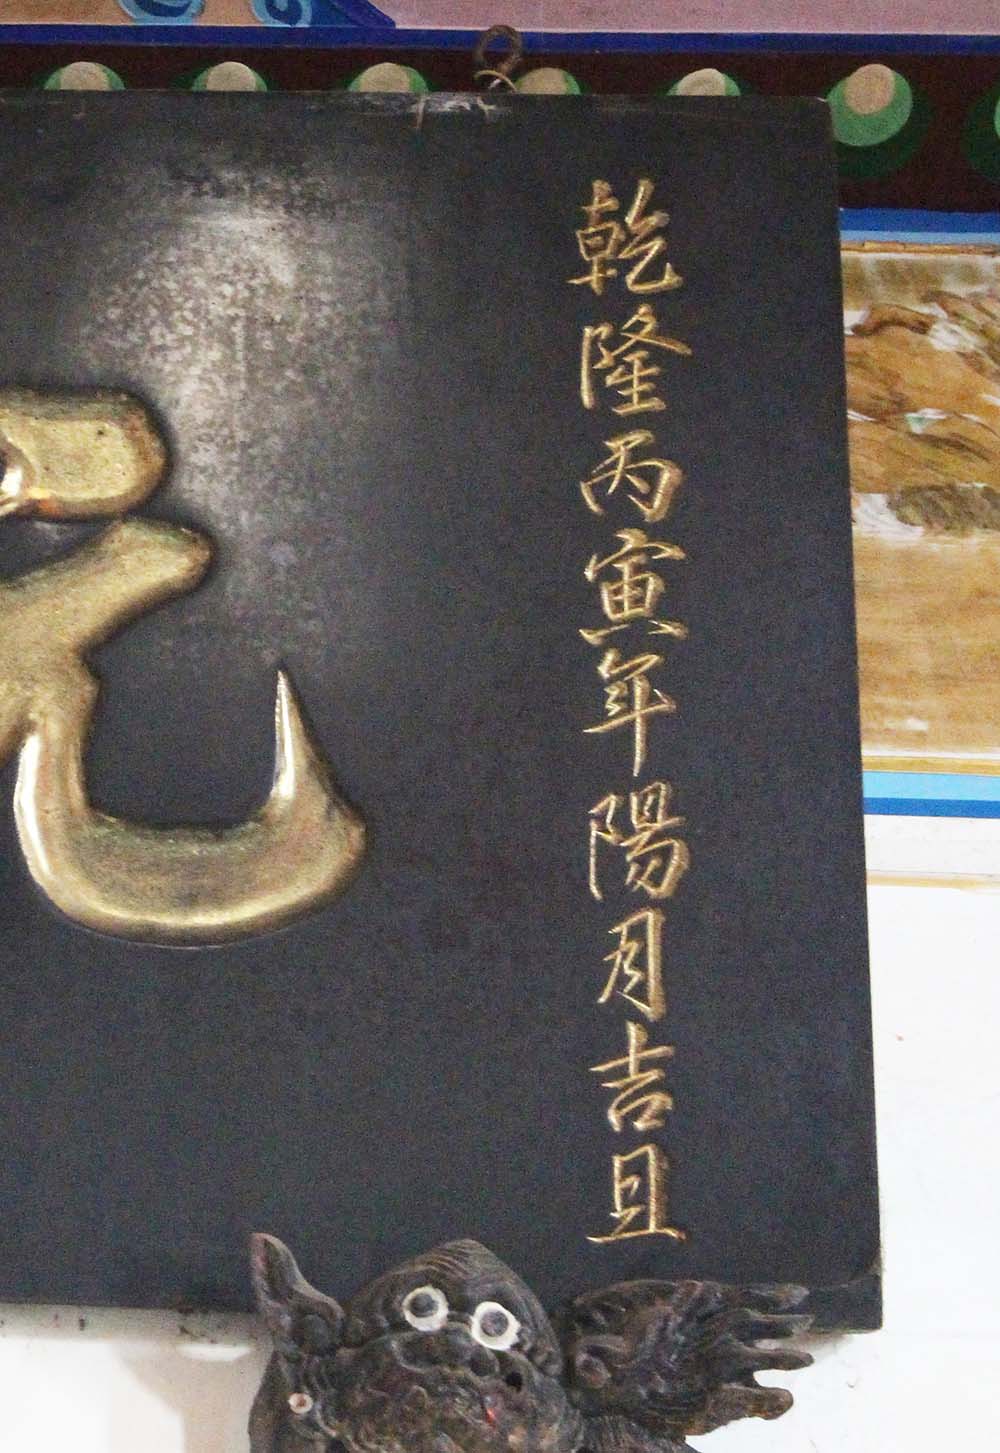 乾隆丙寅年陽月吉旦